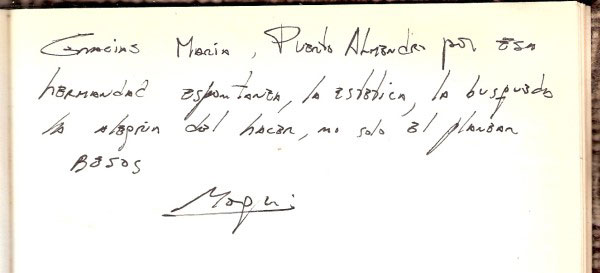 Gracias Maria, Puerto Almendro por esa
hermandad espontanea, la estetica, la busqueda
la alegria del hacer, no solo el planear
Besos